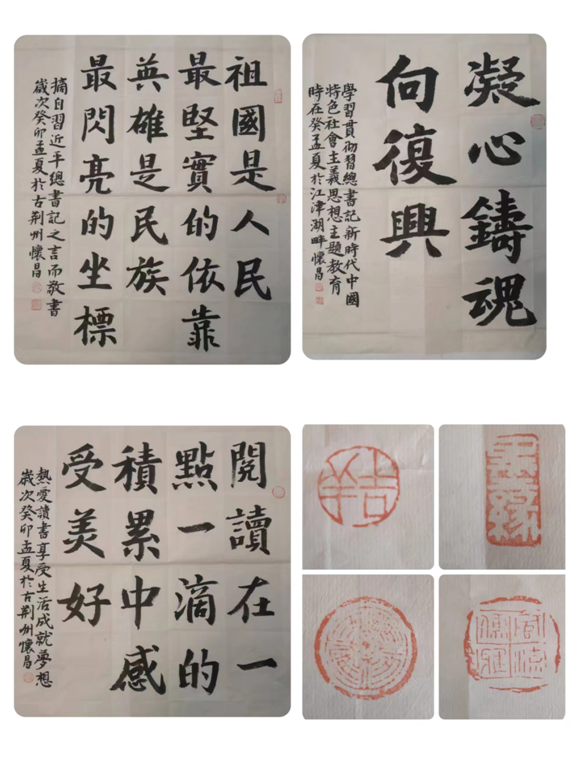 祖國是人民
最堅實的依靠
英雄是民族
最閃亮的坐標
摘自習近平總書記之言而敬書
歲次癸卯孟夏於古荆州懷昌
凝心鑄魂
向復興
學習貫彻習總書記新時代中國
特色社會主義思想主題教育
時在癸孟夏於江津湖畔懷昌
閱讀在一
點一滴的
積累中感
受美好
熱愛讀書享受生活成就夢想
歲次癸卯孟夏於古荆州懷昌
吉羊
墨緣